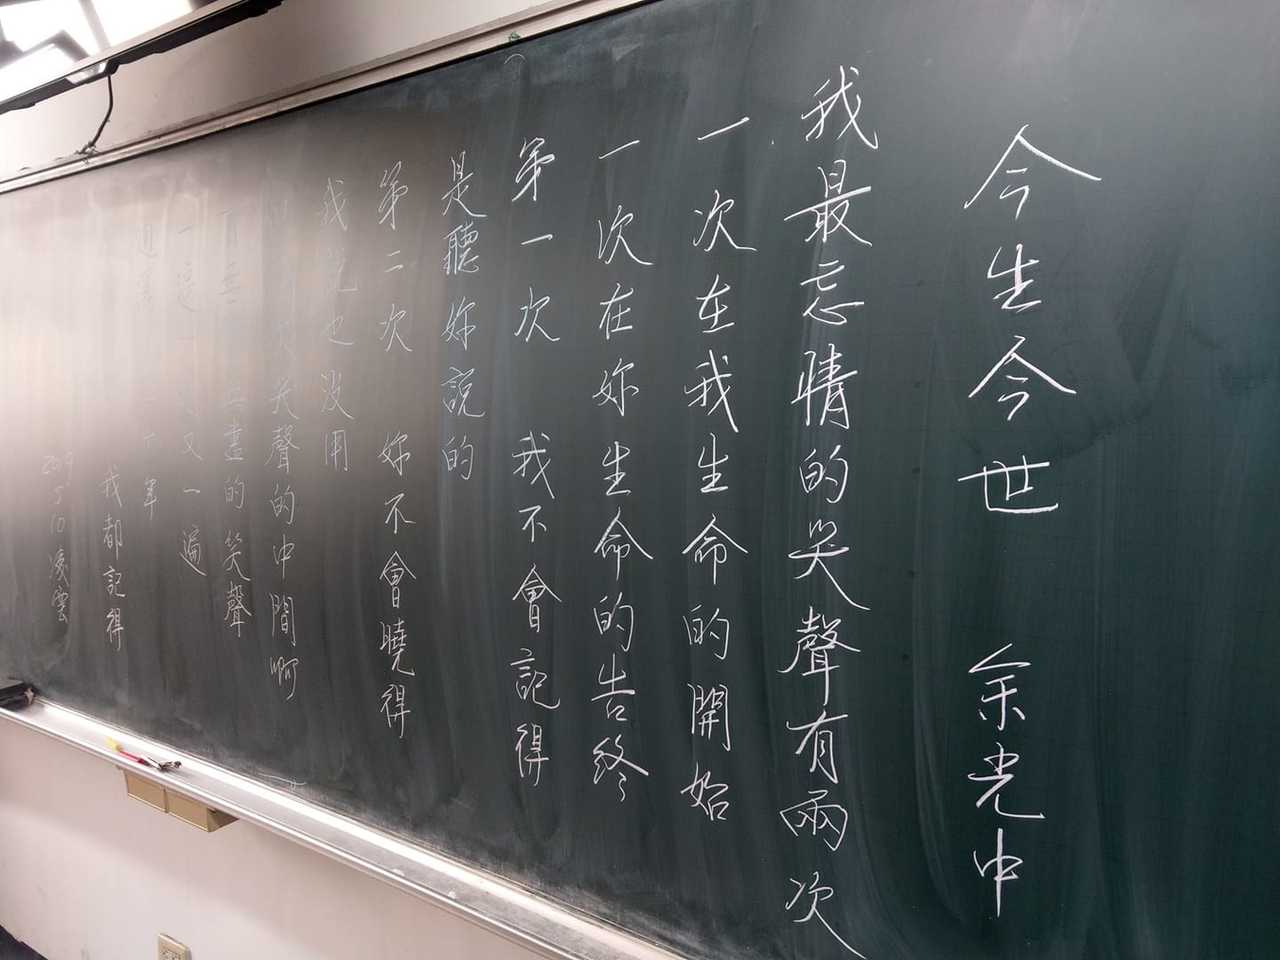 今生今世 余光中
我最忘情的哭聲有兩次
一次在我生命的開始
一次在妳生命的告終
第一次 我不會記得
是聽妳說的
第二次 妳不會曉得
我說也沒用
次哭聲的中間啊
有無 盡的笑聲
一遍 又一遍
十年
我都記得
5 10 凌雲